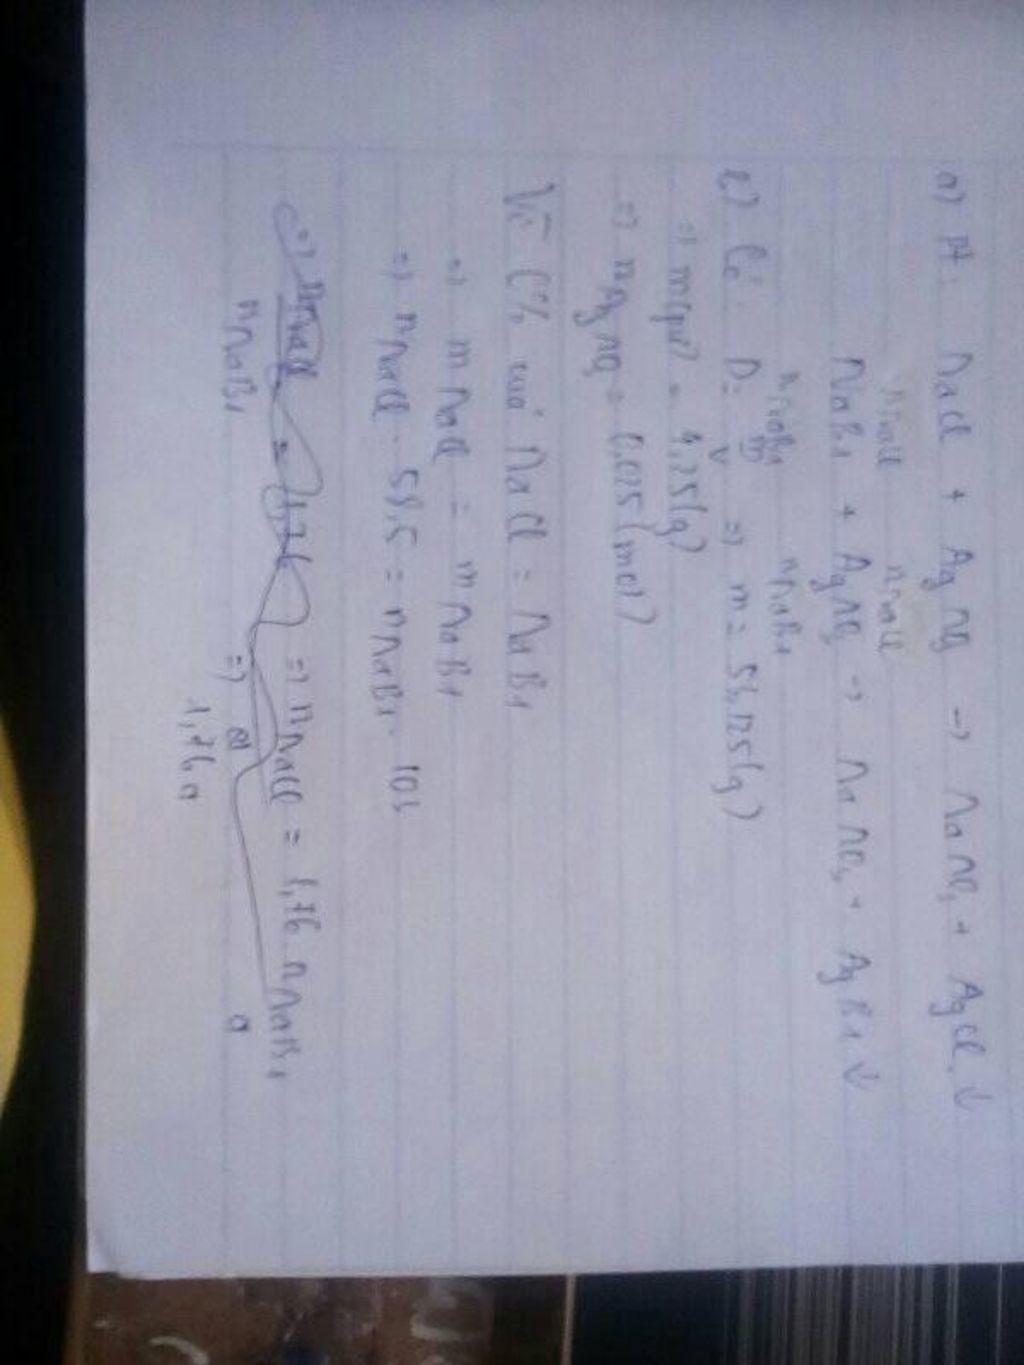 a) Pt: NaCl + AgNO3 → NaNO3 + AgCl ↓
nNaCl nNaCl
NaBr + AgNO3 → NaNO3 + AgBr ↓
nNaBr nNaBr
Có D = m/V => m = 53,125(g)
=> mcpư? = 4,25(g)
=> nAgNO3 = 0,025(mol)
Vì C% của NaCl = NaBr
=> mNaCl = mNaBr
=> nNaCl . 58,5 = nNaBr . 103
=> nNaCl / nNaBr = 1,76 => nNaCl = 1,76 nNaBr
=> a
1,76a